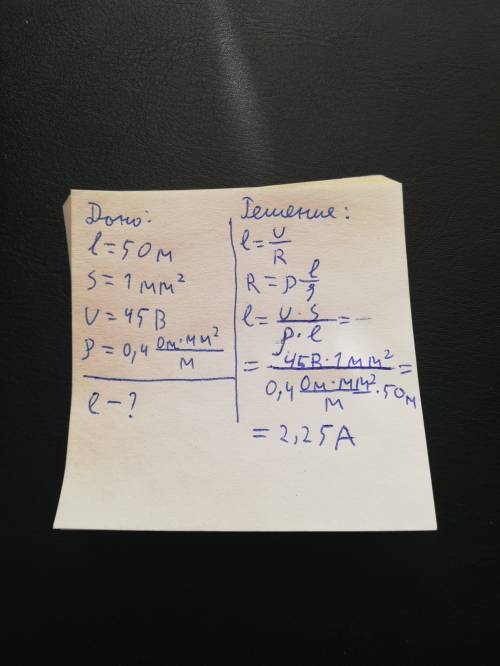 Дано:
l = 50 м
S = 1 мм²
U = 45 В
ρ = 0,4 Ом·мм²/м
l - ?
Решение:
l = U/R
R = ρ l/S
l = U·S/ρ·l =
= 45В·1мм²/0,4 Ом·мм²/м·50м =
= 2,25 А